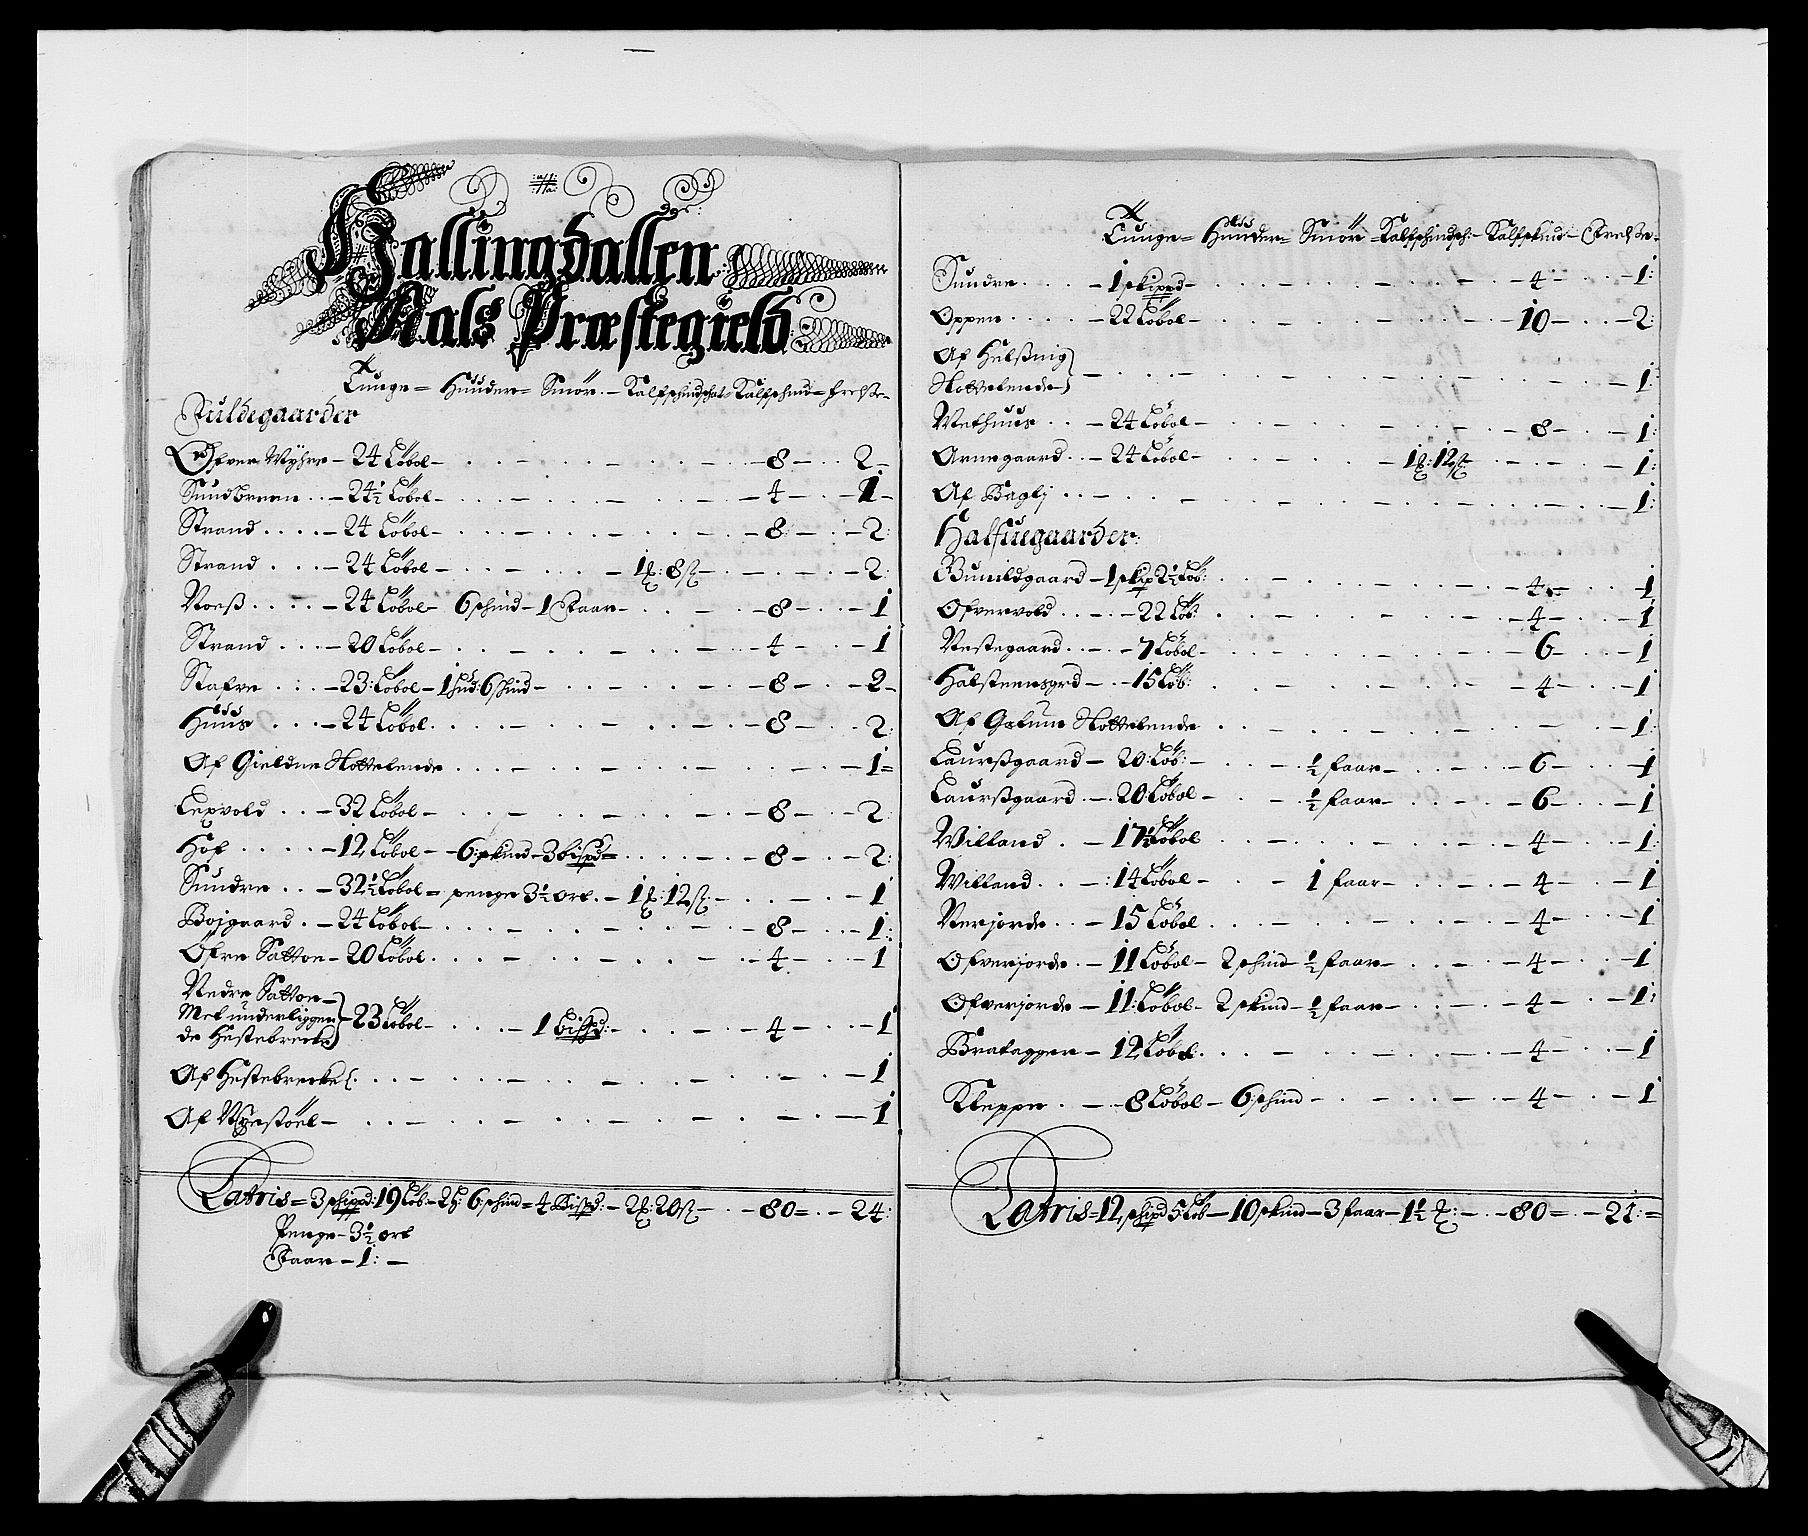 Hallingdallen
Aals Præstegield
Tunge = Huuder = Smör - Kalfschindschat = Kalfschind = Fresze -
Fuldegaarder
Öfver Myhre - 24 Löbol - 8 - 2 -
Sundbreen - 24½ Löbol - 4 - 1 -
Strand - 24 Löbol - 8 - 2:
Strand - 24 Löbol - 8 - 2:
Noesß - 24 Löbol - 6 schind - 1 Faar - 8 - 1
Strand - 20 Löbol - 4 - 1
Stafve - 23: Löbol - 1 hud: 6 schind - 8 - 2 -
Huus - 24 Löbol - 8 - 2:
Af Gieldne Nottelende - 1 =
Lexvold - 32 Löbol - 8 - 2:
Hof - 12 Löbol - 6: skind - 3 bispd = 8 - 2:
Sundre - 32½ Löbol = penge 3½ ort - 1 12 - 1
Bojgaard - 24 Löbol - 8 - 1:
Öfre Satton - 20 Löbol - 4 - 1
Nedre Satton -
Met underliggen
de Hestebrecke - 23 Löbol - 1 bispd: - 4 - 1
Af Hestebrecke - 1
Af Nyestöel - 1
Latris = 3 schippd: 19 Löb - 2 h: 6: schind = 4 Bispd: - 2 20 - 80 = - 24:
Penge - 3½ ort
Faar - 1: -
Tunge = Huuder = Smör = Kalfschindsch: - Kalfskind - Fresze -
Sundre - 1 skippd - 4 - 1:
Oppen - 22 Löbol - 10 - 2:
Af Helßnig
Nottelende - 1:
Methuus - 24 Löbol - 8 - 1:
Arnegaard - 24 Löbol - 1 12 - 1:
Af Baglj - 1:
Halfuegaarder:
Gunildgaard - 1 skip 2½ Löb: - 4 - 1
Ofvervold - 22 Löb: - 4 - 1
Nestegaard - 7 Löbol - 6 - 1
Halsteensgrd - 15 Löb: - 4 - 1
Af Nottelende - 1:
Laurßgaard - 20: Löb: - ½ faar - 6 - 1
Laurßgaard - 20: Löbol - ½ faar - 6 - 1
Villand - 17½ Löbol - 4 - 1:
Villand - 14 Löbol - 1 faar - 4 - 1
Nerjorde - 15 Löbol - 4 - 1
Ofverjorde - 11 Löbol - 2 schind - ½ faar - 4 - 1
Ofverjorde - 11: Löbol - 2 skind - ½ faar - 4 - 1:
Brataggen - 12 Löbol - 4 - 1
Kleppe - 8 Löbol - 6: schind - 4 - 1
Latris = 12 schipd 5 Löb - 10 skind - 3 faar - 1½ - 80 = - 21: =